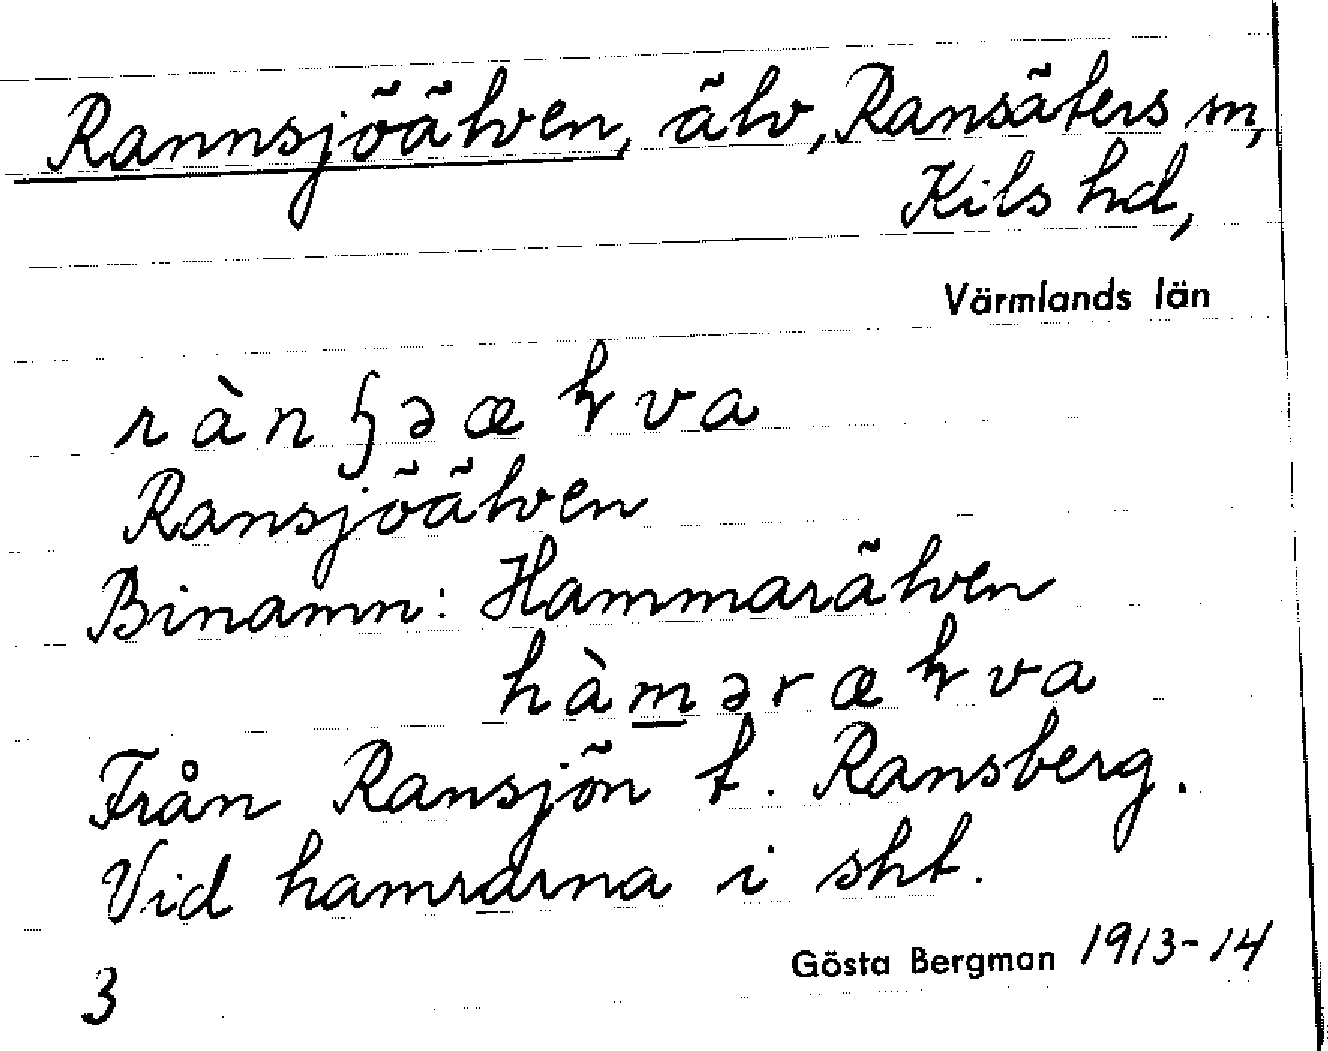 Rannsjöälven, älv, Ransäters sn,
Kils hd,
Värmlands län
ràn ɧ ə æ ɽ v a
Ransjöälven
Binamn: Hammarälven
hàm̲əræɽva
Från Ransjön t. Ransberg.
Vid hamrarna i sht.
Gösta Bergman 1913-14
3